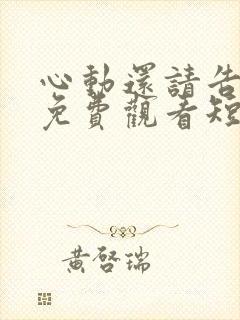 心動還請告
免費觀看短
黃啓瑞